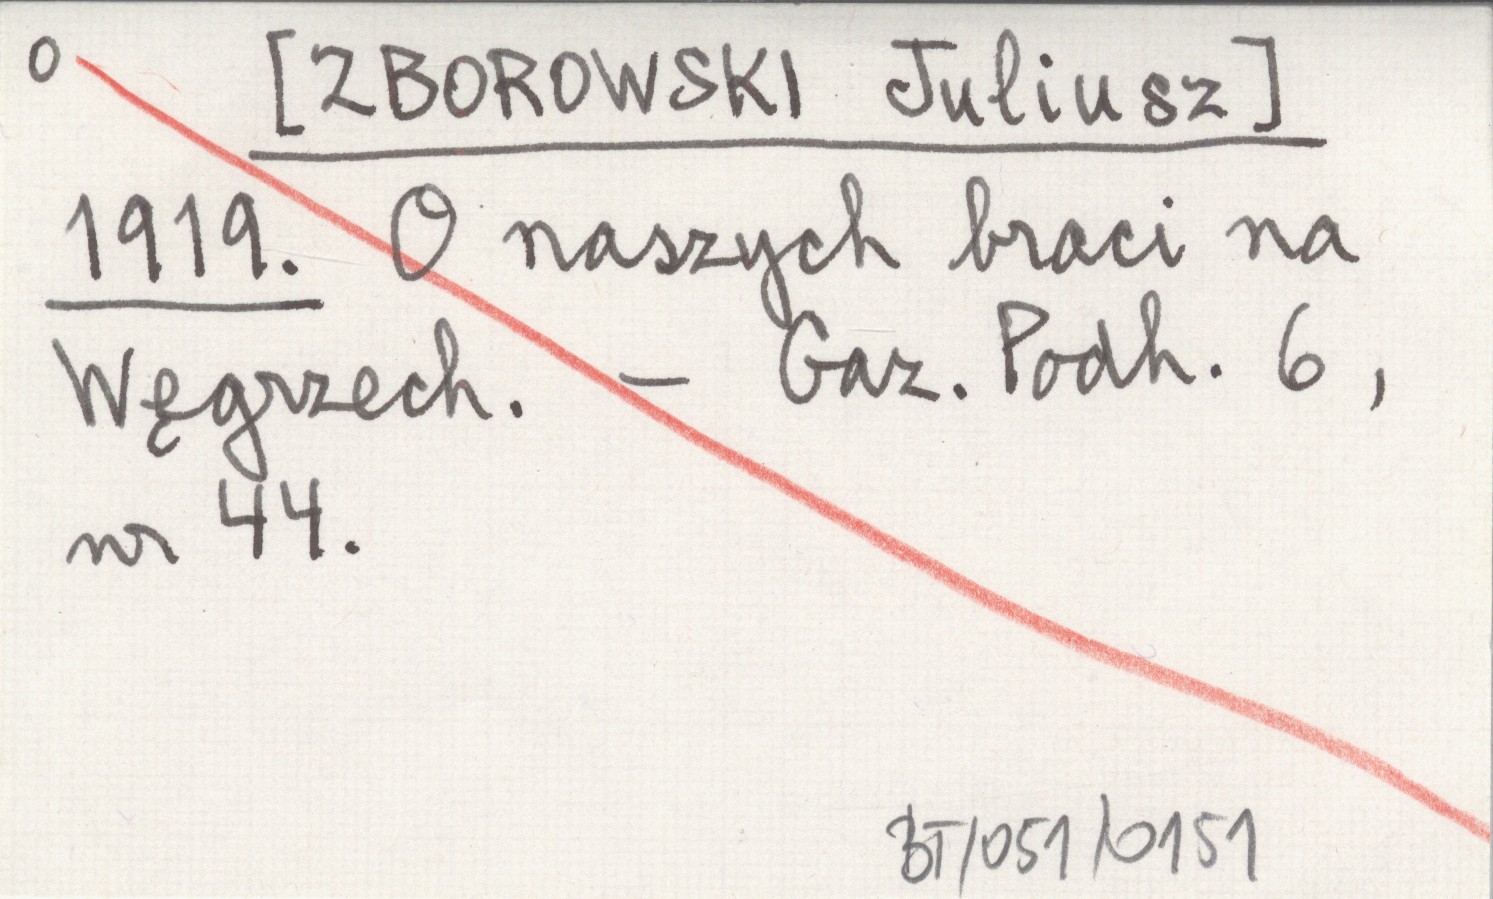 O [ZBOROWSKI Juliusz]
1919. O naszych braci na
Węgrzech. – Gaz. Podh. 6,
nr 44.
BT/051/0151